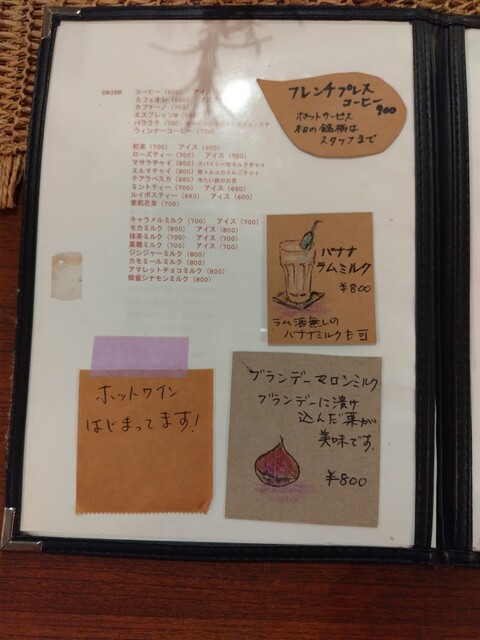 DRINK
コーヒー (600) アイス
カフェオレ (650)
カプチーノ (700)
エスプレッソW
バララテ (700)
ウィンナーコーヒー (700)
紅茶 (700) アイス (600)
ローズティー (700) アイス (700)
マサラチャイ (800) スパイシーなミルクチャイ
エルマチャイ (800)
テアラベスカ (680) 冷たい緑のお茶
ミントティー (700) アイス (680)
ルイボスティー (660) アイス (700)
茉莉花茶 (700)
キャラメルミルク (700) アイス (700)
モカミルク (800) アイス (800)
抹茶ミルク (700) アイス (700)
黒糖ミルク (700) アイス (700)
ジンジャーミルク (800)
カモミールミルク (800)
アマレットチョコミルク (800)
蜂蜜シナモンミルク (800)
フレンチプレス
コーヒー
900
ポットサービス
本日の銘柄は
スタッフまで
バナナ
ラムミルク
¥800
ラム酒無しの
バナナミルクも可
ホットワイン
はじまってます!
ブランデーマロンミルク
ブランデーに漬け
込んだ栗が
美味です。
¥800